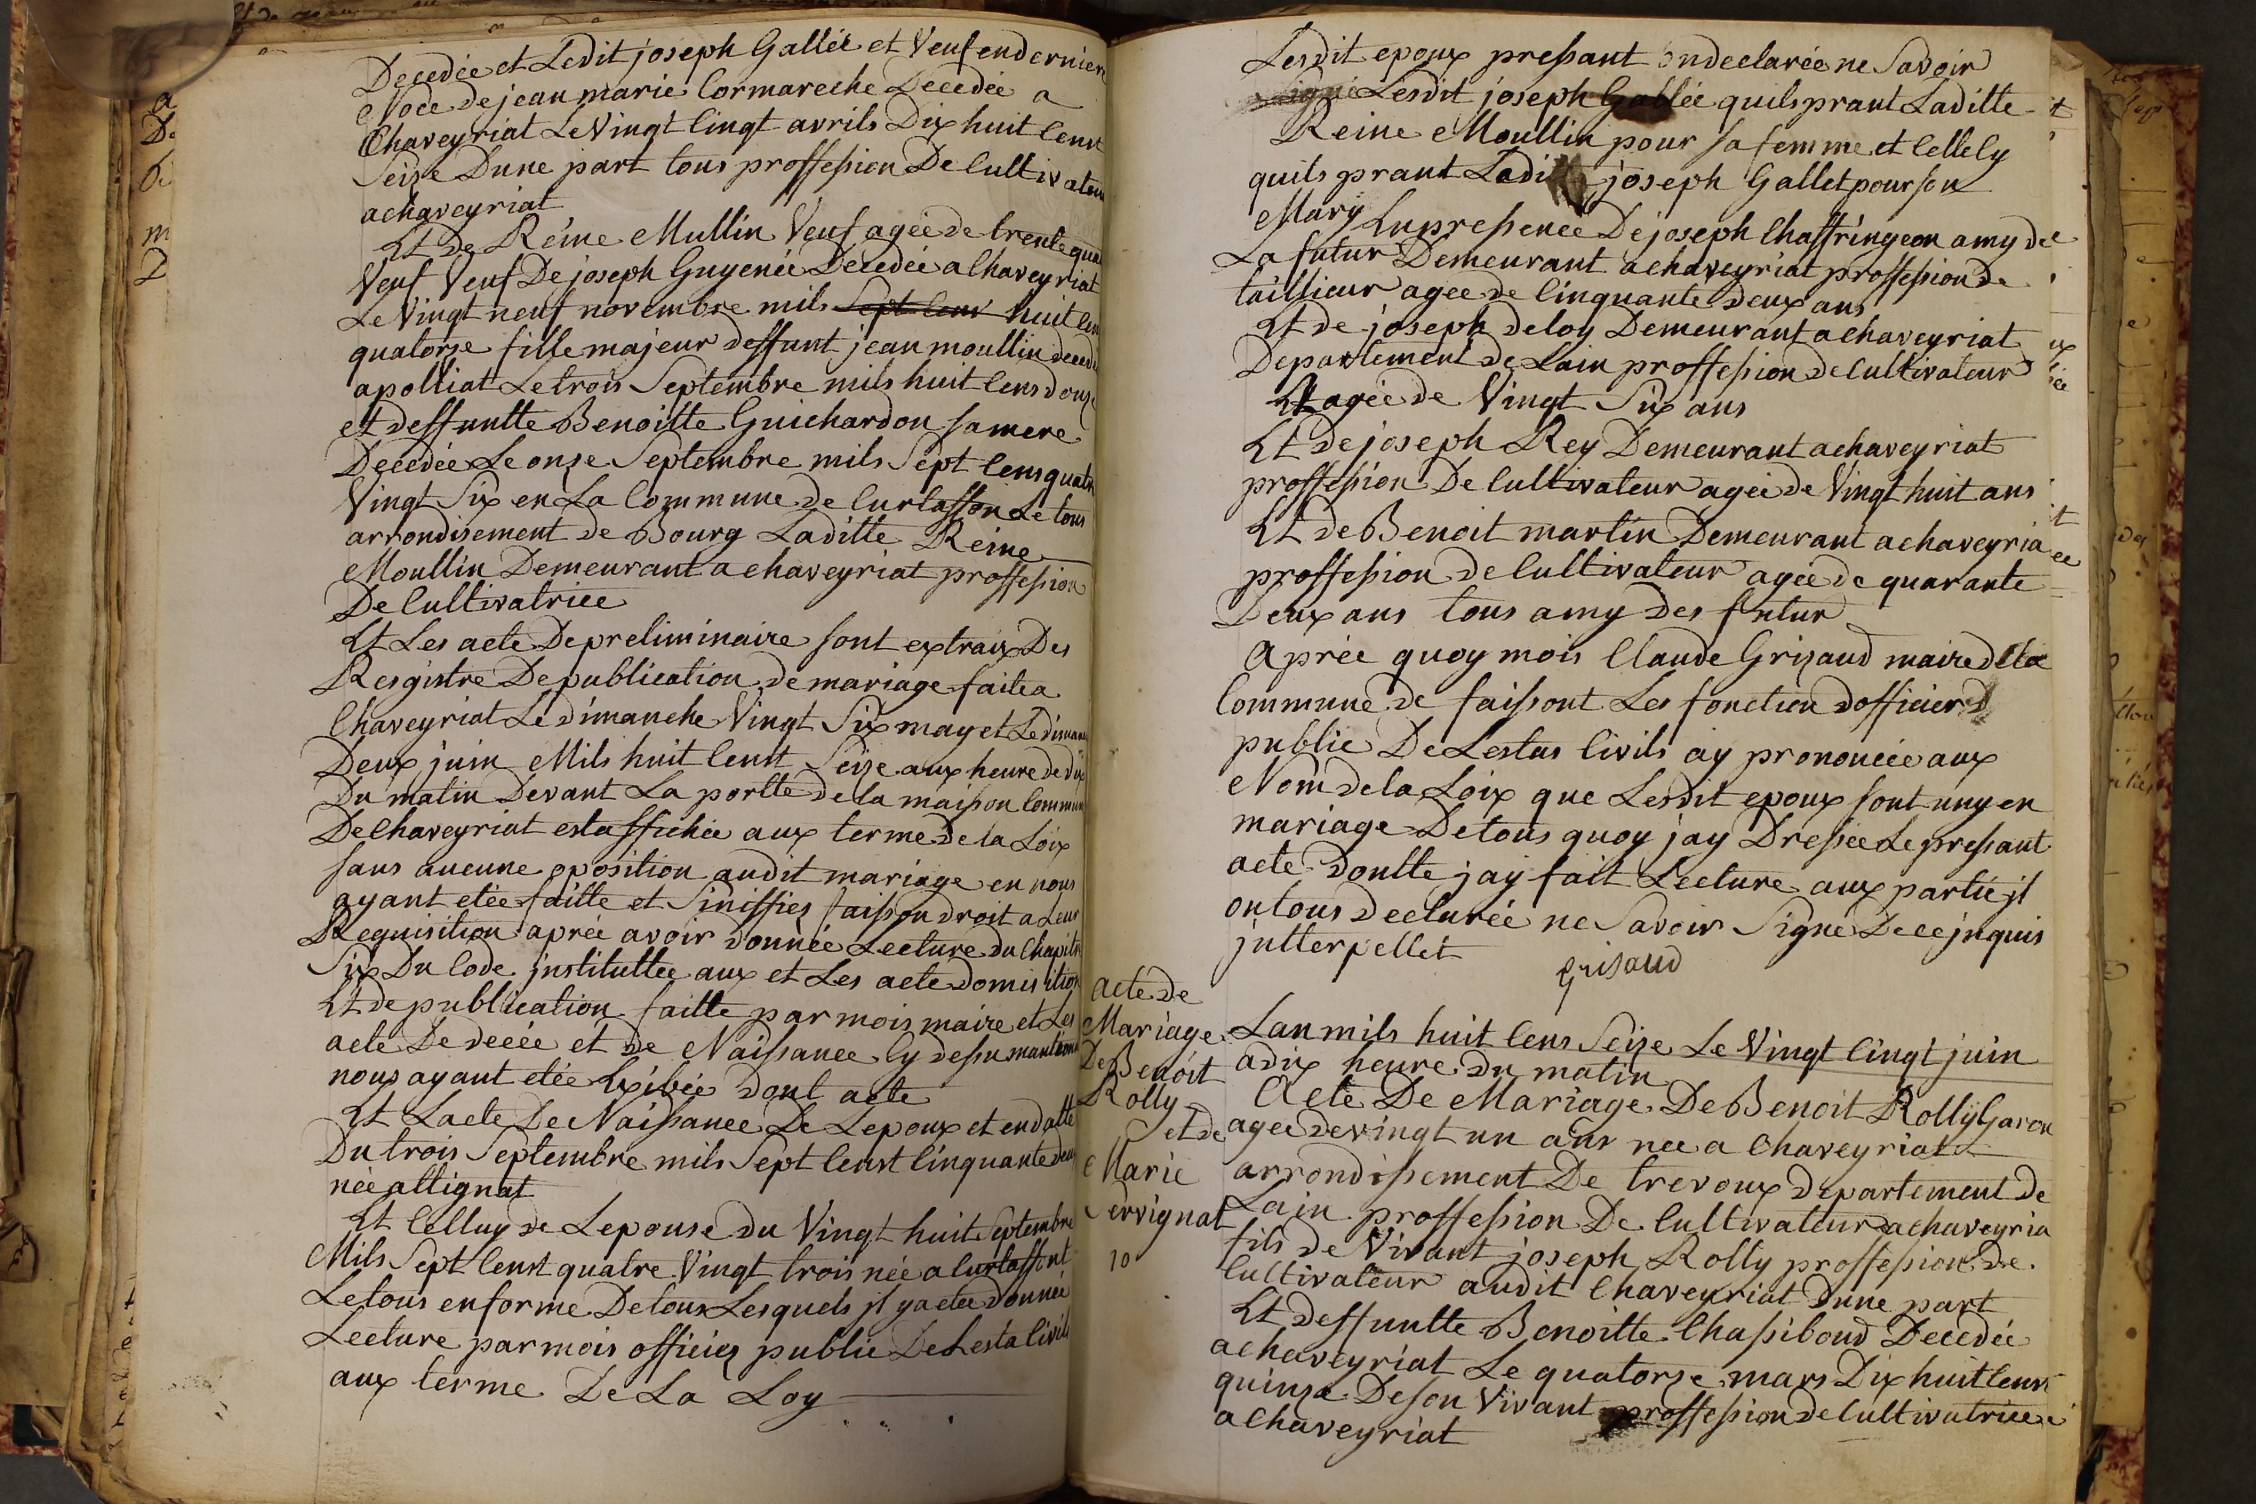 Decedée et Ledit joseph Gallée et Veuf en derniere
Noce de jean marie Cormareche Decedée a
Chaveyriat Le Vingt Cingt avrils Dix huit Censt
Seize Dune part tous proffession De Cultivateur
a chaveyriat
Et De Réine Mullin Veuf agée de trente qua
Veuf Veuf De joseph Guyenée Decedée a Chaveyriat
Le Vingt neuf novembre mils Sept Cens huit Cen
quatorse fille majeur deffunt jean moullin deced
a polliat Le trois Septembre mils huit Cens douze
et deffuntte Benoitte Guichardon sa mere
Decedée Le onze Septembre mils Sept Cens quatre
Vingt Six en La Commune de Curtasson Le tous
arrondisement de Bourg Laditte Reine
Moullin Demeurant a chaveyriat proffession
De Cultivatrice
Et Les acte De preliminaire sont extraix Des
Resgistre De publication de mariage faite a
Chaveyriat Le dimanche Vingt Six may et Le diman
Deux juin Mils huit Censt Seize aux heure de dix
Du matin Devant La portte de la maison Commun
De Chaveyriat est affichée aux terme De la Loix
sans aucune oposition audit mariage en nous
ayant etée faitte et Siniffiez faisson droit a Leur
Requisition aprée avoir donnée Lecture du Chapitre
Six Du Code instituttee aux et Les acte domisition
Et de publication faitte par mois maire et Les
acte De decée et de Naissance Cy dessu mantion
nous ayant etée Exibée dont acte
Et Lacte De Naissance De Lepoux et en datte
Du trois Septembre mils Sept Censt Cinquante deux
née attignat
Et Celluy de Lepouse du Vingt huit Septembre
Mils Sept Censt quatre Vingt trois née a Curtaffont
Le tous en forme De tous Lesquels jl y a etee Donnée
Lecture par mois officiez public De Lesta Civils
aux terme De La Loy
Lesdit epoux pressant ondeclarée ne Savoir
signé Lesdit joseph Gallée quils prant Laditte
Reine Moullin pour sa femme et Celle Cy
quils prant Ledit joseph Gallet pour son
Mary En pressence De joseph Chaffringeon amy de
La futur Demeurant a chaveyriat proffession de
taillieur agee de Cinquante deux ans
Et de joseph deloy Demeurant a chaveyriat
Departement de Lain proffession de Cultivateur
Et agée de Vingt Six ans
Et De joseph Rey Demeurant a chaveyriat
proffession De Cultivateur agée de Vingt huit ans
Et de Benoit martin Demeurant a chaveyria
proffession de Cultivateur agée de quarante
Deux ans tous amy des futur
Aprée quoy mois Claude Grisaud maire de la
Commune de faissont Les fonction dofficier
public De Lestas Civils ay prononcée aux
Nom de la Loix que Lesdit epoux sont uny en
mariage De tous quoy jay Dressée Le pressant
acte dontte jay fait Lecture aux partie jl
on tous declarée ne Savoir Signé De ce jnquis
jutterpellet
grisaud
Acte de
Mariage
De Benoit
Rolly
et de
Marie
Servignat
10
Lan mils huit Cens Seize Le Vingt Cingt juin
a dix heure du matin
Acte De Mariage De Benoit Rolly Garon
agee de vingt un ans nee a Chaveyriat
arrondissement De trevoux departement de
Lain proffession De Cultivateur a chaveyria
fils de Vivant joseph Rolly proffession De
Cultivateur audit Chaveyriat dune part
Et deffuntte Benoitte Chassiboud Decedée
a chaveyriat Le quatorze mars Dix huit Cens
quinze De son Vivant proffession de Cultivatrice
a Chaveyriat